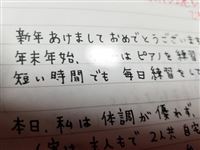 新年あけましておめでとうございます
年末年始、 はピアノを練習
短い時間でも 毎日練習をして
本日、私は 体調が優れず、